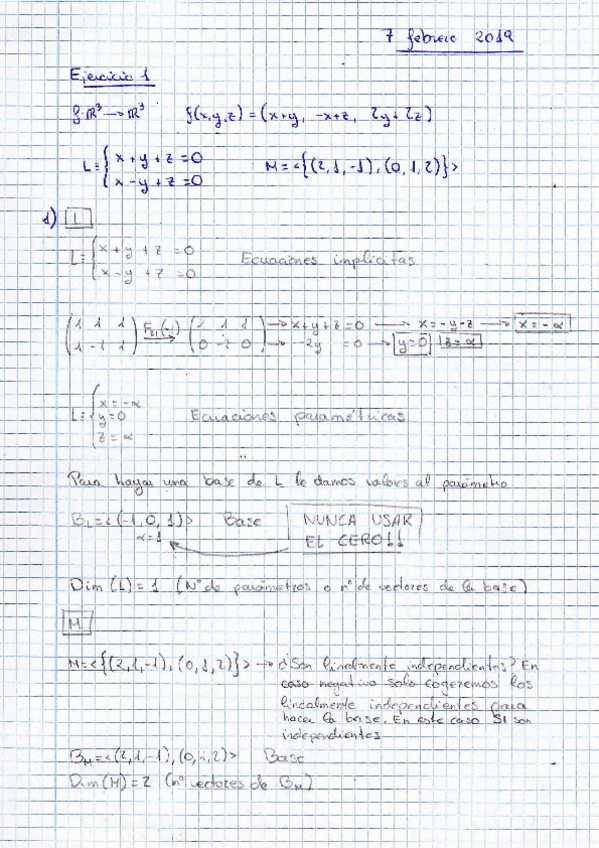 7 febrero 2019
Ejercicio 1
f: ℝ³ → ℝ³ f(x,y,z) = (x+y, -x+z, 2y+2z)
L ≡ { x + y + z = 0
x - y + z = 0
M = <{(2,1,-1), (0,1,2)}>
1) L
L ≡ { x + y + z = 0
x - y + z = 0
Ecuaciones implícitas
( 1 1 1 ) F₂₁(-1) → ( 1 1 1 ) → x+y+z = 0 → x = -y-z → x = -α
( 1 -1 1 ) ( 0 -2 0 ) → -2y = 0 → y=0 z=α
L ≡ { x = -α
y = 0
z = α
Ecuaciones paramétricas
Para hayar una base de L le damos valores al parámetro
B_L = <(-1,0,1)> Base
α=1
NUNCA USAR
EL CERO!!
Dim (L) = 1 (Nº de parámetros o nº de vectores de la base)
M
M = <{(2,1,-1), (0,1,2)}> → ¿Son linealmente independientes? En
caso negativo solo cogeremos los
linealmente independientes para
hacer la base. En este caso SI son
independientes
B_M = <(2,1,-1), (0,1,2)> Base
Dim (M) = 2 (nº vectores de B_M)